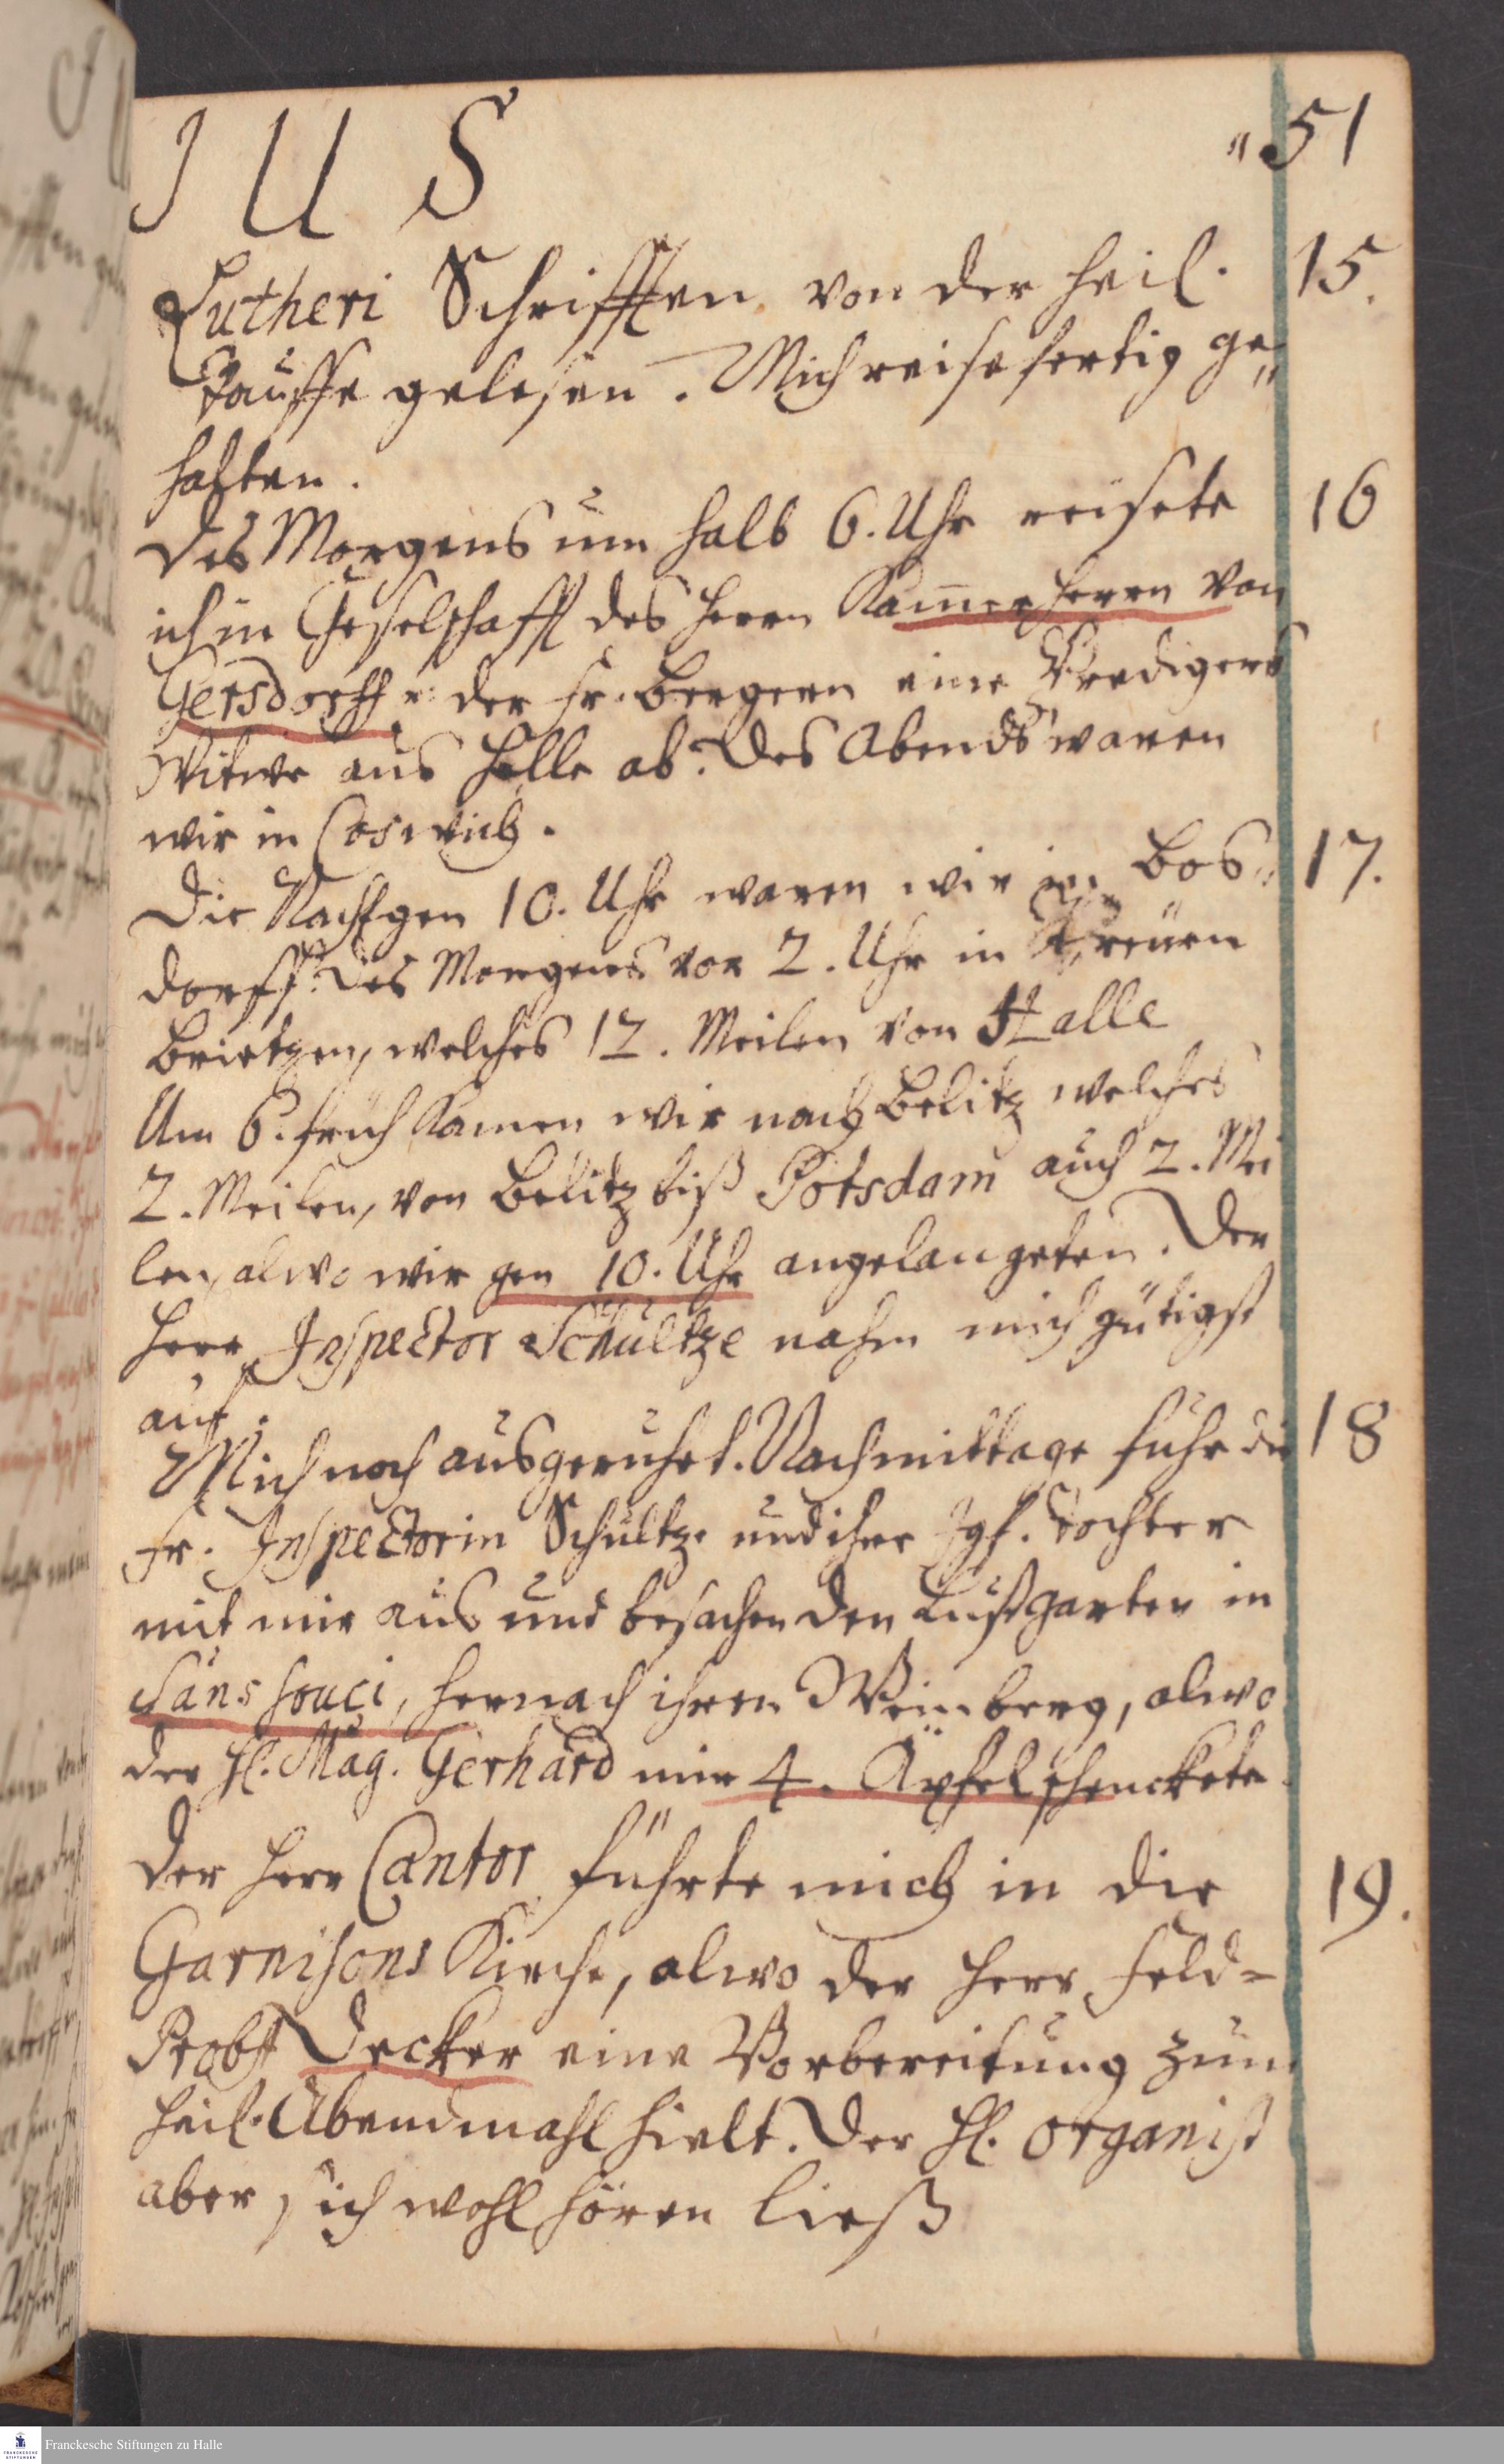 JUS
" 51
Lutheri Schrifften von der heil. 15.
Tauffe gelesen. Mich reisefertig ge„
halten.
Des Morgens um halb 6. Uhr reisete 16
ich in Geselschafft des Herrn Kam̄erherrn von
Gersdorff u. der Fr. Bergern eine Predigers
Witwe aus Halle ab. Des Abends waren
wir in Coswich.
Die Nacht gen 10. Uhr waren wir in Bos„ 17.
dorff. Des Morgens vor 2. Uhr in Treüen
Brietzen, welches 12. Meilen von Halle
Um 6. früh kamen wir nach Belitz welches
2. Meilen, von Belitz biß Potsdam auch 2. Mei
len, alwo wir gen 10. Uhr angelangeten. Der
Herr Inspector Schultze nahm mich gütigst
auf.
Mich noch ausgeruhet. Nachmittage fuhr die 18
Fr. Inspectorin Schultz. und ihre Jgf. Tochter
mit mir aus und besachen den Lustgarten in
Sans souci, hernach ihren Weinberg, alwo
der H. Mag. Gerhard mir 4. Äpfel schenckete.
Der Herr Cantor führte mich in die 19.
Garnisons Kirche, alwo der Herr Feld=
Probst Decker eine Vorbereitung zum
heil. Abendmahl hielt. Der H. Organist
aber sich wohl hören ließ
Franckesche Stiftungen zu Halle